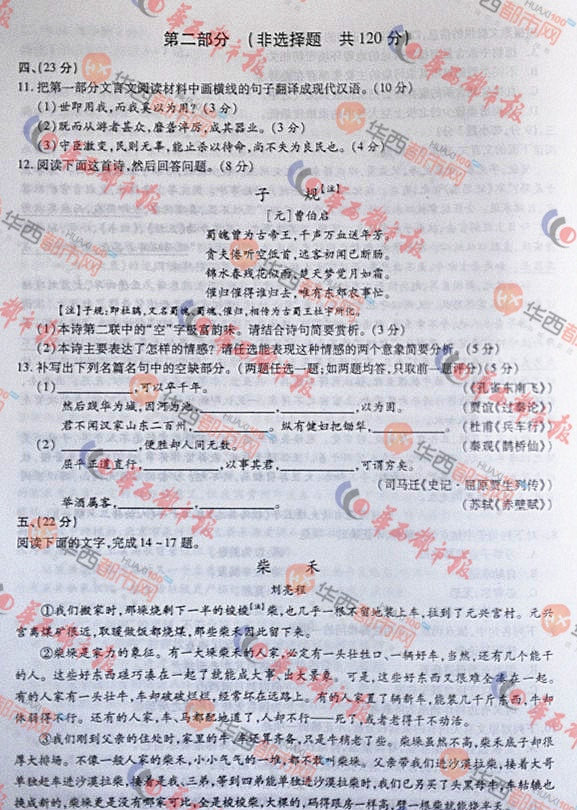 第二部分 (非选择题 共120分)
四、(23分)
11.把第一部分文言文阅读材料中画横线的句子翻译成现代汉语。(10分)
(1)世即用我,而我奚以为用?(3分)
(2)既而从游者甚众,磨砻淬厉,成其器业。(3分)
(3)守臣激变,民则无辜,能止杀以待命,尚不失为良民也。(4分)
12.阅读下面这首诗,然后回答问题。(8分)
子 规[注]
[元]曹伯启
蜀魄曾为古帝王,千声万血送年芳。
贪夫倦听空低首,远客初闻已断肠。
锦水春残花似雨,楚天梦觉月如霜。
催归催得谁归去,唯有东郊农事忙。
[注]子规:即杜鹃,又名蜀魄、蜀魂、催归,相传为古蜀王杜宇所化。
(1)本诗第二联中的“空”字极富韵味。请结合诗句简要赏析。(3分)
(2)本诗主要表达了怎样的情感?请任选能表现这种情感的两个意象简要分析。(5分)
13.补写出下列名篇名句中的空缺部分。(两题任选一题;如两题均答,只取前一题评分)(5分)
(1) ,可以卒千年。 (《孔雀东南飞》)
然后践华为城,因河为池, , ,以为固。 (贾谊《过秦论》)
君不闻汉家山东二百州, 。纵有健妇把锄犁, 。 (杜甫《兵车行》)
(2) ,便胜却人间无数。 (秦观《鹊桥仙》)
屈平正道直行, ,以事其君, ,可谓穷矣。
(司马迁《史记·屈原贾生列传》)
举酒属客, , 。 (苏轼《赤壁赋》)
五、(22分)
阅读下面的文字,完成14~17题。
柴 禾
刘亮程
①我们搬家时,那垛烧剩下一半的梭梭[注]柴,也几乎一根不留地装上车,拉到了元兴宫村。元兴
宫离煤矿很近,取暖做饭都烧煤,那些柴禾因此留了下来。
②柴垛是家力的象征。有一大垛柴禾的人家,必定有一头壮牲口、一辆好车,当然,还有几个能干
的人。这些好东西碰巧凑在一起了就能成大事、出大景象。可是,这些好东西又很难全凑在一起。
有的人家有一头壮牛,车却破破烂烂,经常坏在远路上。有的人家置了辆新车,能装几千斤东西,牛却
体弱得不行。还有的人家,车、马都配地道了,人却不行——死了,或者老得干不动活。
③我们刚到父亲的住处时,家里的牛、车还算齐备,只是牛稍老了些。柴垛虽然不高,柴禾底子却很
厚大排场。不像一般人家的柴禾,小小气气的一堆,都不敢叫柴垛。父亲带我们进沙漠拉柴,接着大哥
单独赶车进沙漠拉柴,接着是我、三弟,等到四弟能单独进沙漠拉柴时,我们已另买了头黑母牛,车轱辘也
换成新的,柴垛更是没有哪家可比,全是梭梭柴,大棵的,码得跟房一样高,劈一根柴就能烧